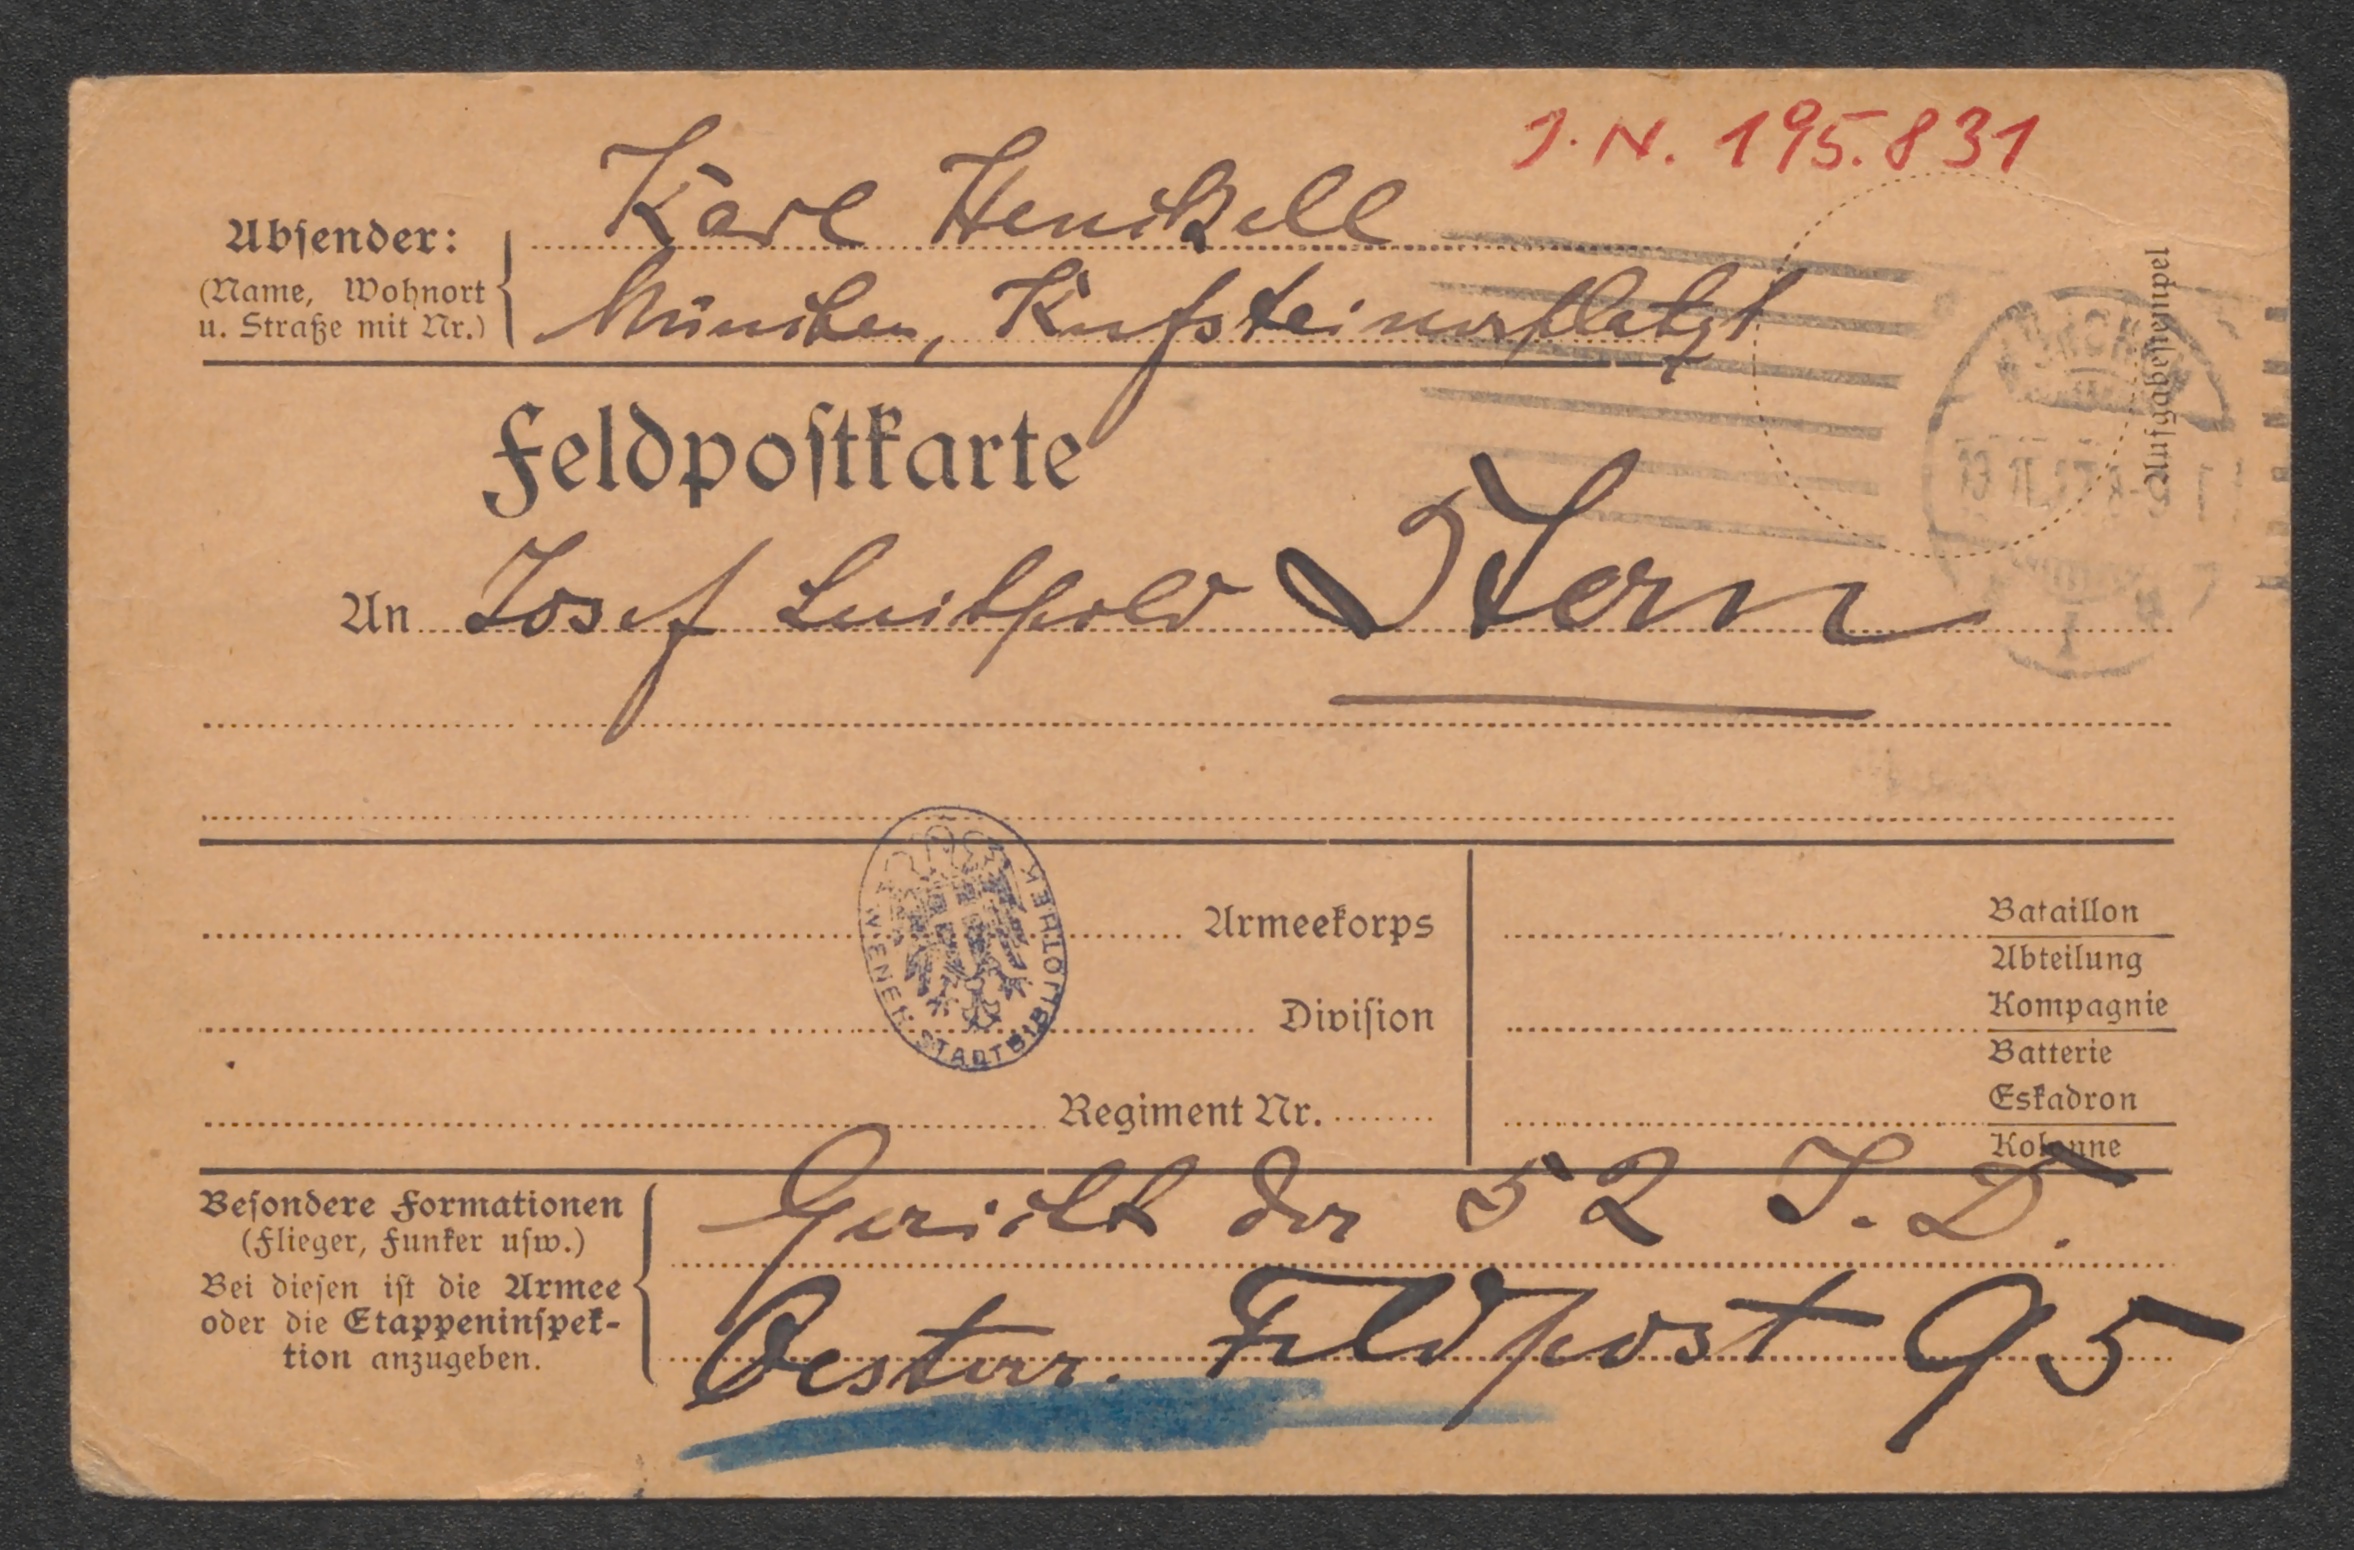 J. N. 195.831
Karl Henckell
Absender:
(Name, Wohnort
u. Straße mit Nr.)
München, Kufsteinerplatz 1
Aufgabestempel
Feldpostkarte
An Josef Luitpold Stern
Armeekorps
Division
Regiment Nr.
Bataillon
Abteilung
Kompagnie
Batterie
Eskadron
Kolonne
WIENER STADTBIBLIOTHEK
Besondere Formationen
(Flieger, Funker usw.)
Bei diesen ist die Armee
oder die Etappeninspek-
tion anzugeben.
Gericht der 52 I. D.
Oesterr. Feldpost 95